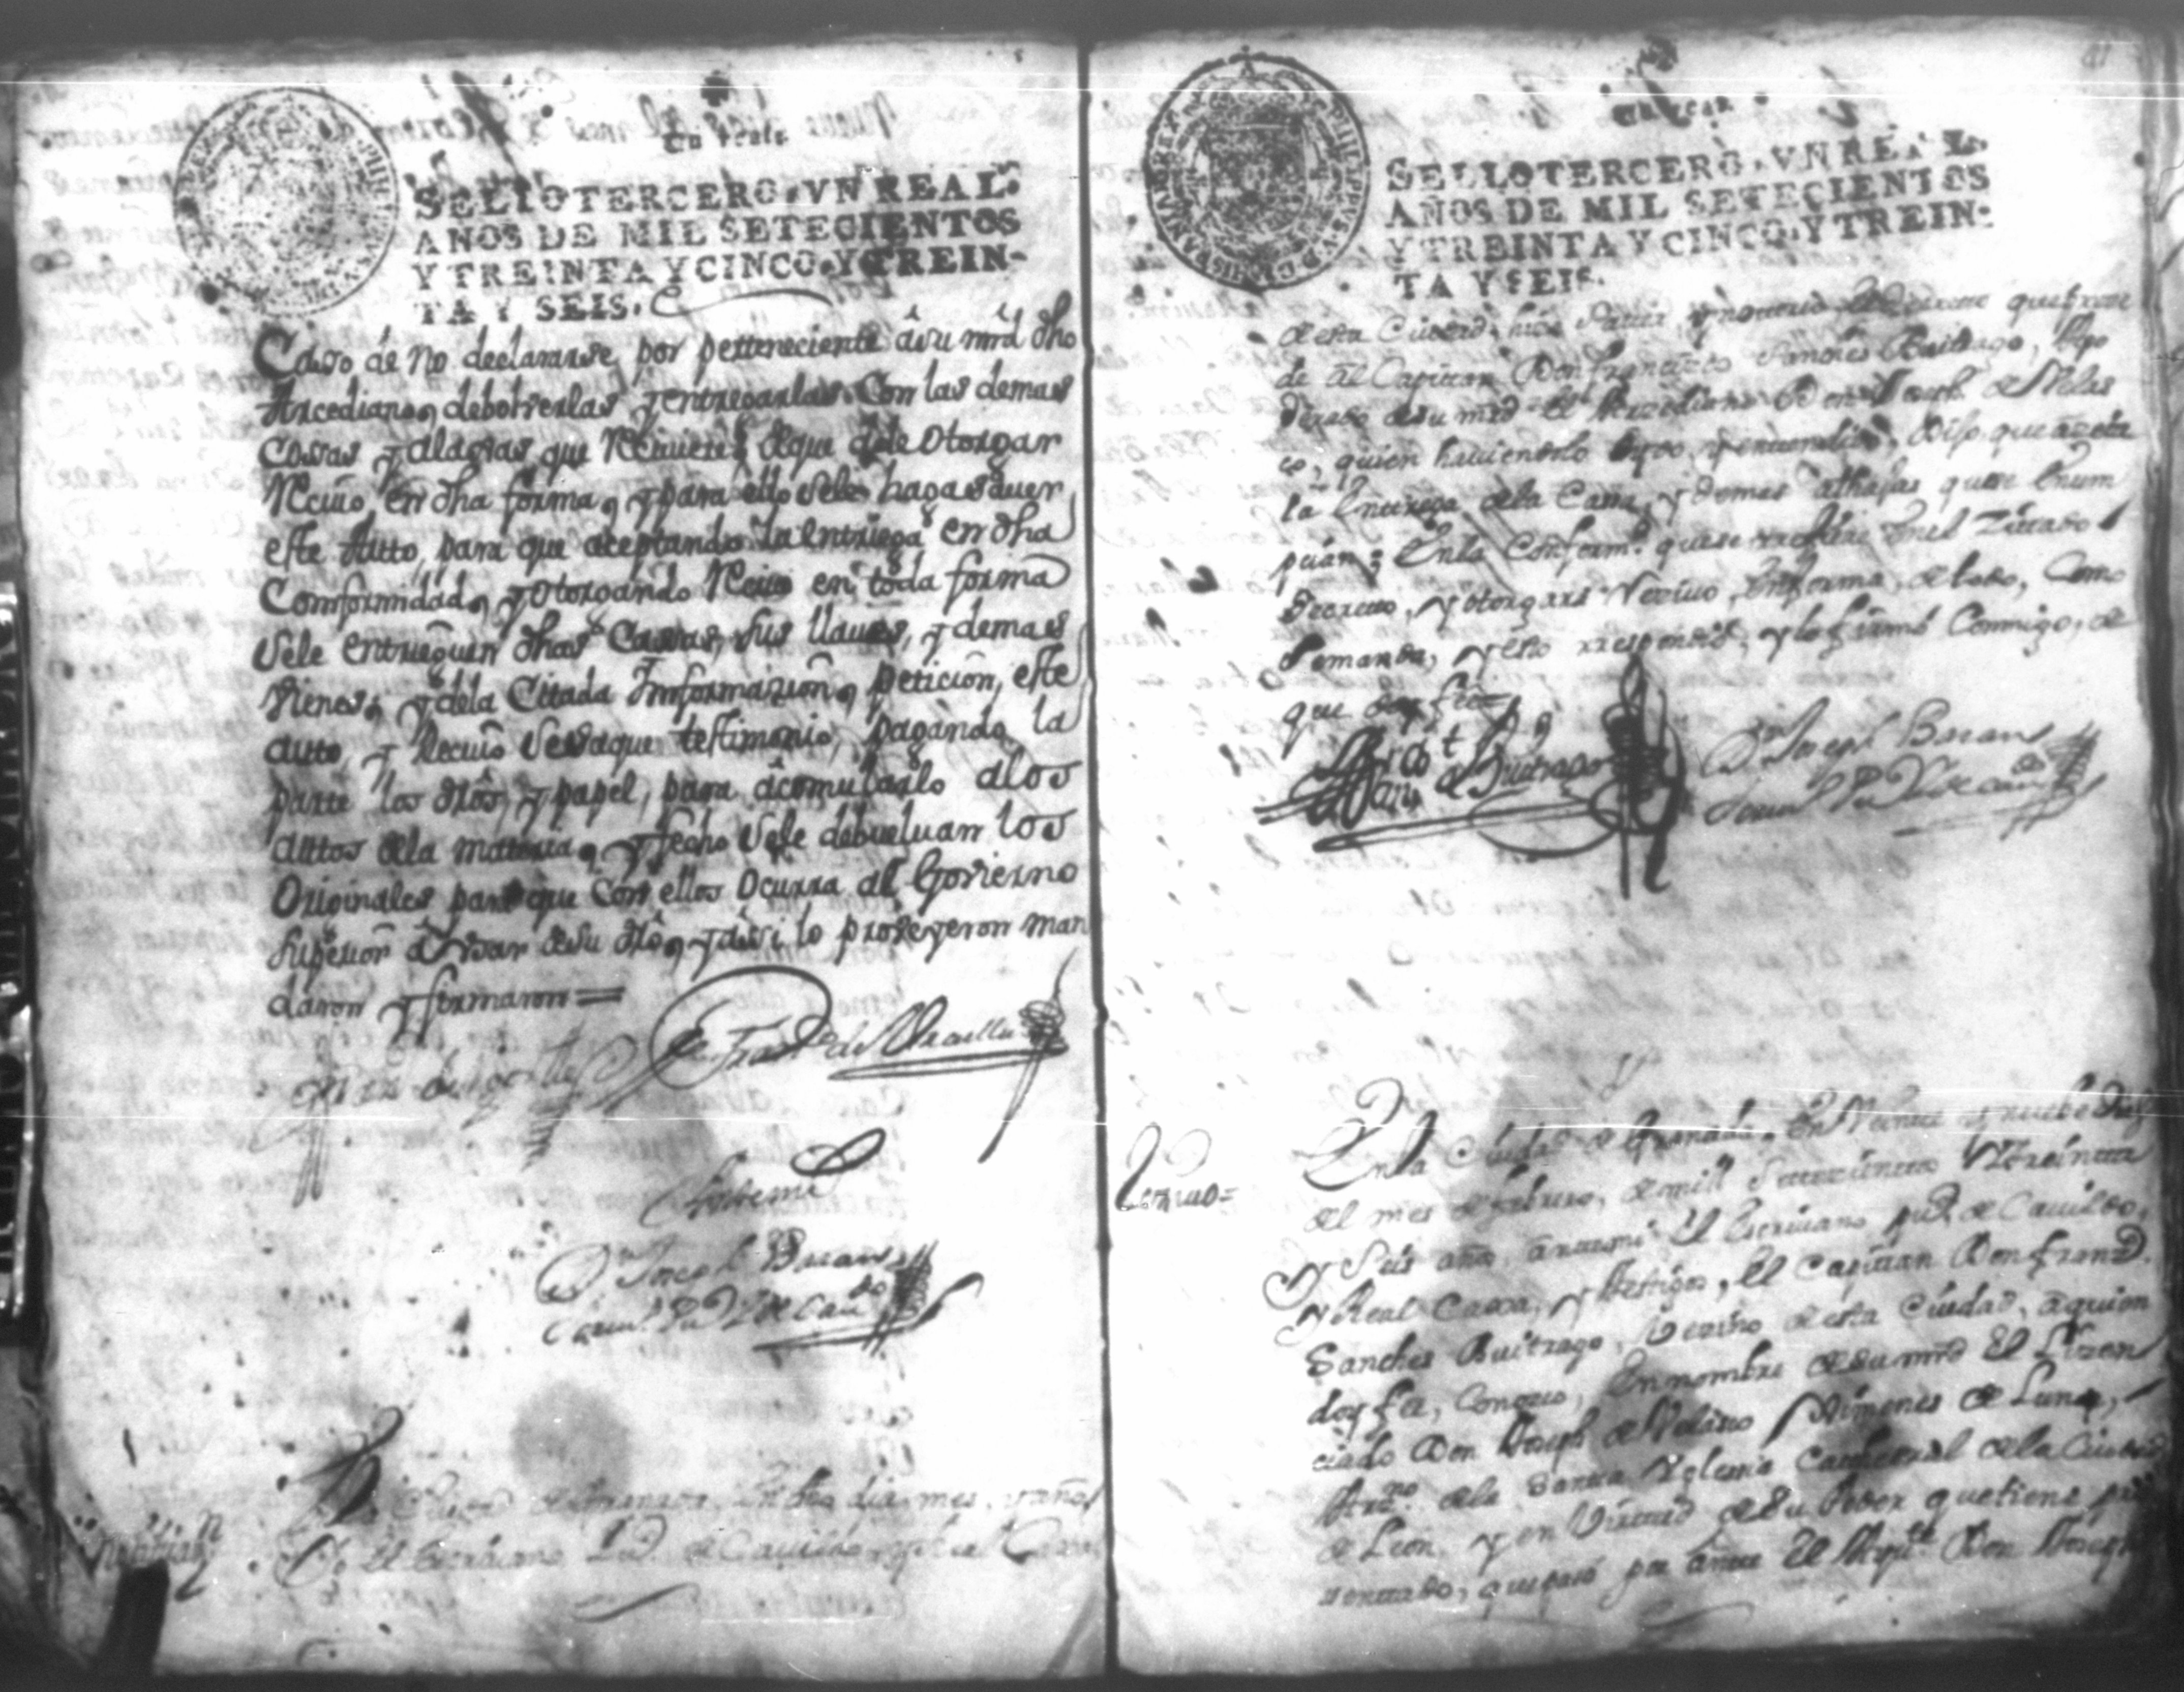 Un real
SELLO TERCERO, VN REAL.
AÑOS DE MIL SETECIENTOS
Y TREINTA Y CINCO, Y TREIN-
TA Y SEIS.
Casso de no declararse por perteneciente â su mrd dho
Arcediano, debolverlas y entregarlas Con las demas
Cossas y alagias que Reciviere de que dêve otorgar
Reciuo en dha forma, y para ello se le haga sauer
este Autto, para que aceptando la entriega en dha
Conformidad, y otorgando Reciuo en toda forma
se le entrieguen dhas Cassas, sus llaues, y demas
vienes, y dela Citada Ynformazion, peticion, este
autto, y Reciuo se saque testimonio, pagando la
parte los dros, y papel, para acomularlo alos
auttos dela materia, y fecho se le debueluan los
Originales para que con ellos Ocurra al Govierno
Superior â Vsar de su dro, y assi lo proveyeron man
daron y firmaron =
Antemi
Dn Joseph
En la Ciudad de Granada, en dho dia, mes, y año
Yo el Escrivano Pub. de Cauildo, y Real Caxa
Notificn
Un real
SELLO TERCERO, VN REAL.
AÑOS DE MIL SETECIENTOS
Y TREINTA Y CINCO, Y TREIN-
TA Y SEIS.
de esta Ciudad, hice Sauer, y notorio el Decreto que prose
de al Capitan Don Francisco Sanches Buitrago, Apo
derado de su mrd el Arcediano Don Joseph de Velas
co, quien hauiendolo oydo, y entendido, Dijo que azeta
la Entriega dela Cassa, y demas alhajas que se
en la Conformd. que se en el Zitado
Decreto, y otorgará Reziuo, en forma, de todo, Como
se manda, y esto respondio, y lo firmó Conmigo, de
que doy fee =
de Buitrago
Dn Joseph
Rezivo =
En la Ciudad de Granada, en Veinte y nuebe Dias
del mes de febrero, de mill Setezientos y treinta
y Seis años, antemi el Escriuano pub. de Cauildo,
y Real Caxa, y testigos, el Capitan Don Franco.
Sanches Buitrago, Vezino de esta Ciudad, a quien
doy fee, Conozco, en nombre de su mrd El Lizen
ciado Don Joseph de Velasco y Ximenes de Luna,
Arzno. de la Santa Yglesia Cathedral de la Ciudad
de Leon, y en Virtud de su Poder que tiene
que pasó por ante El Don Joseph